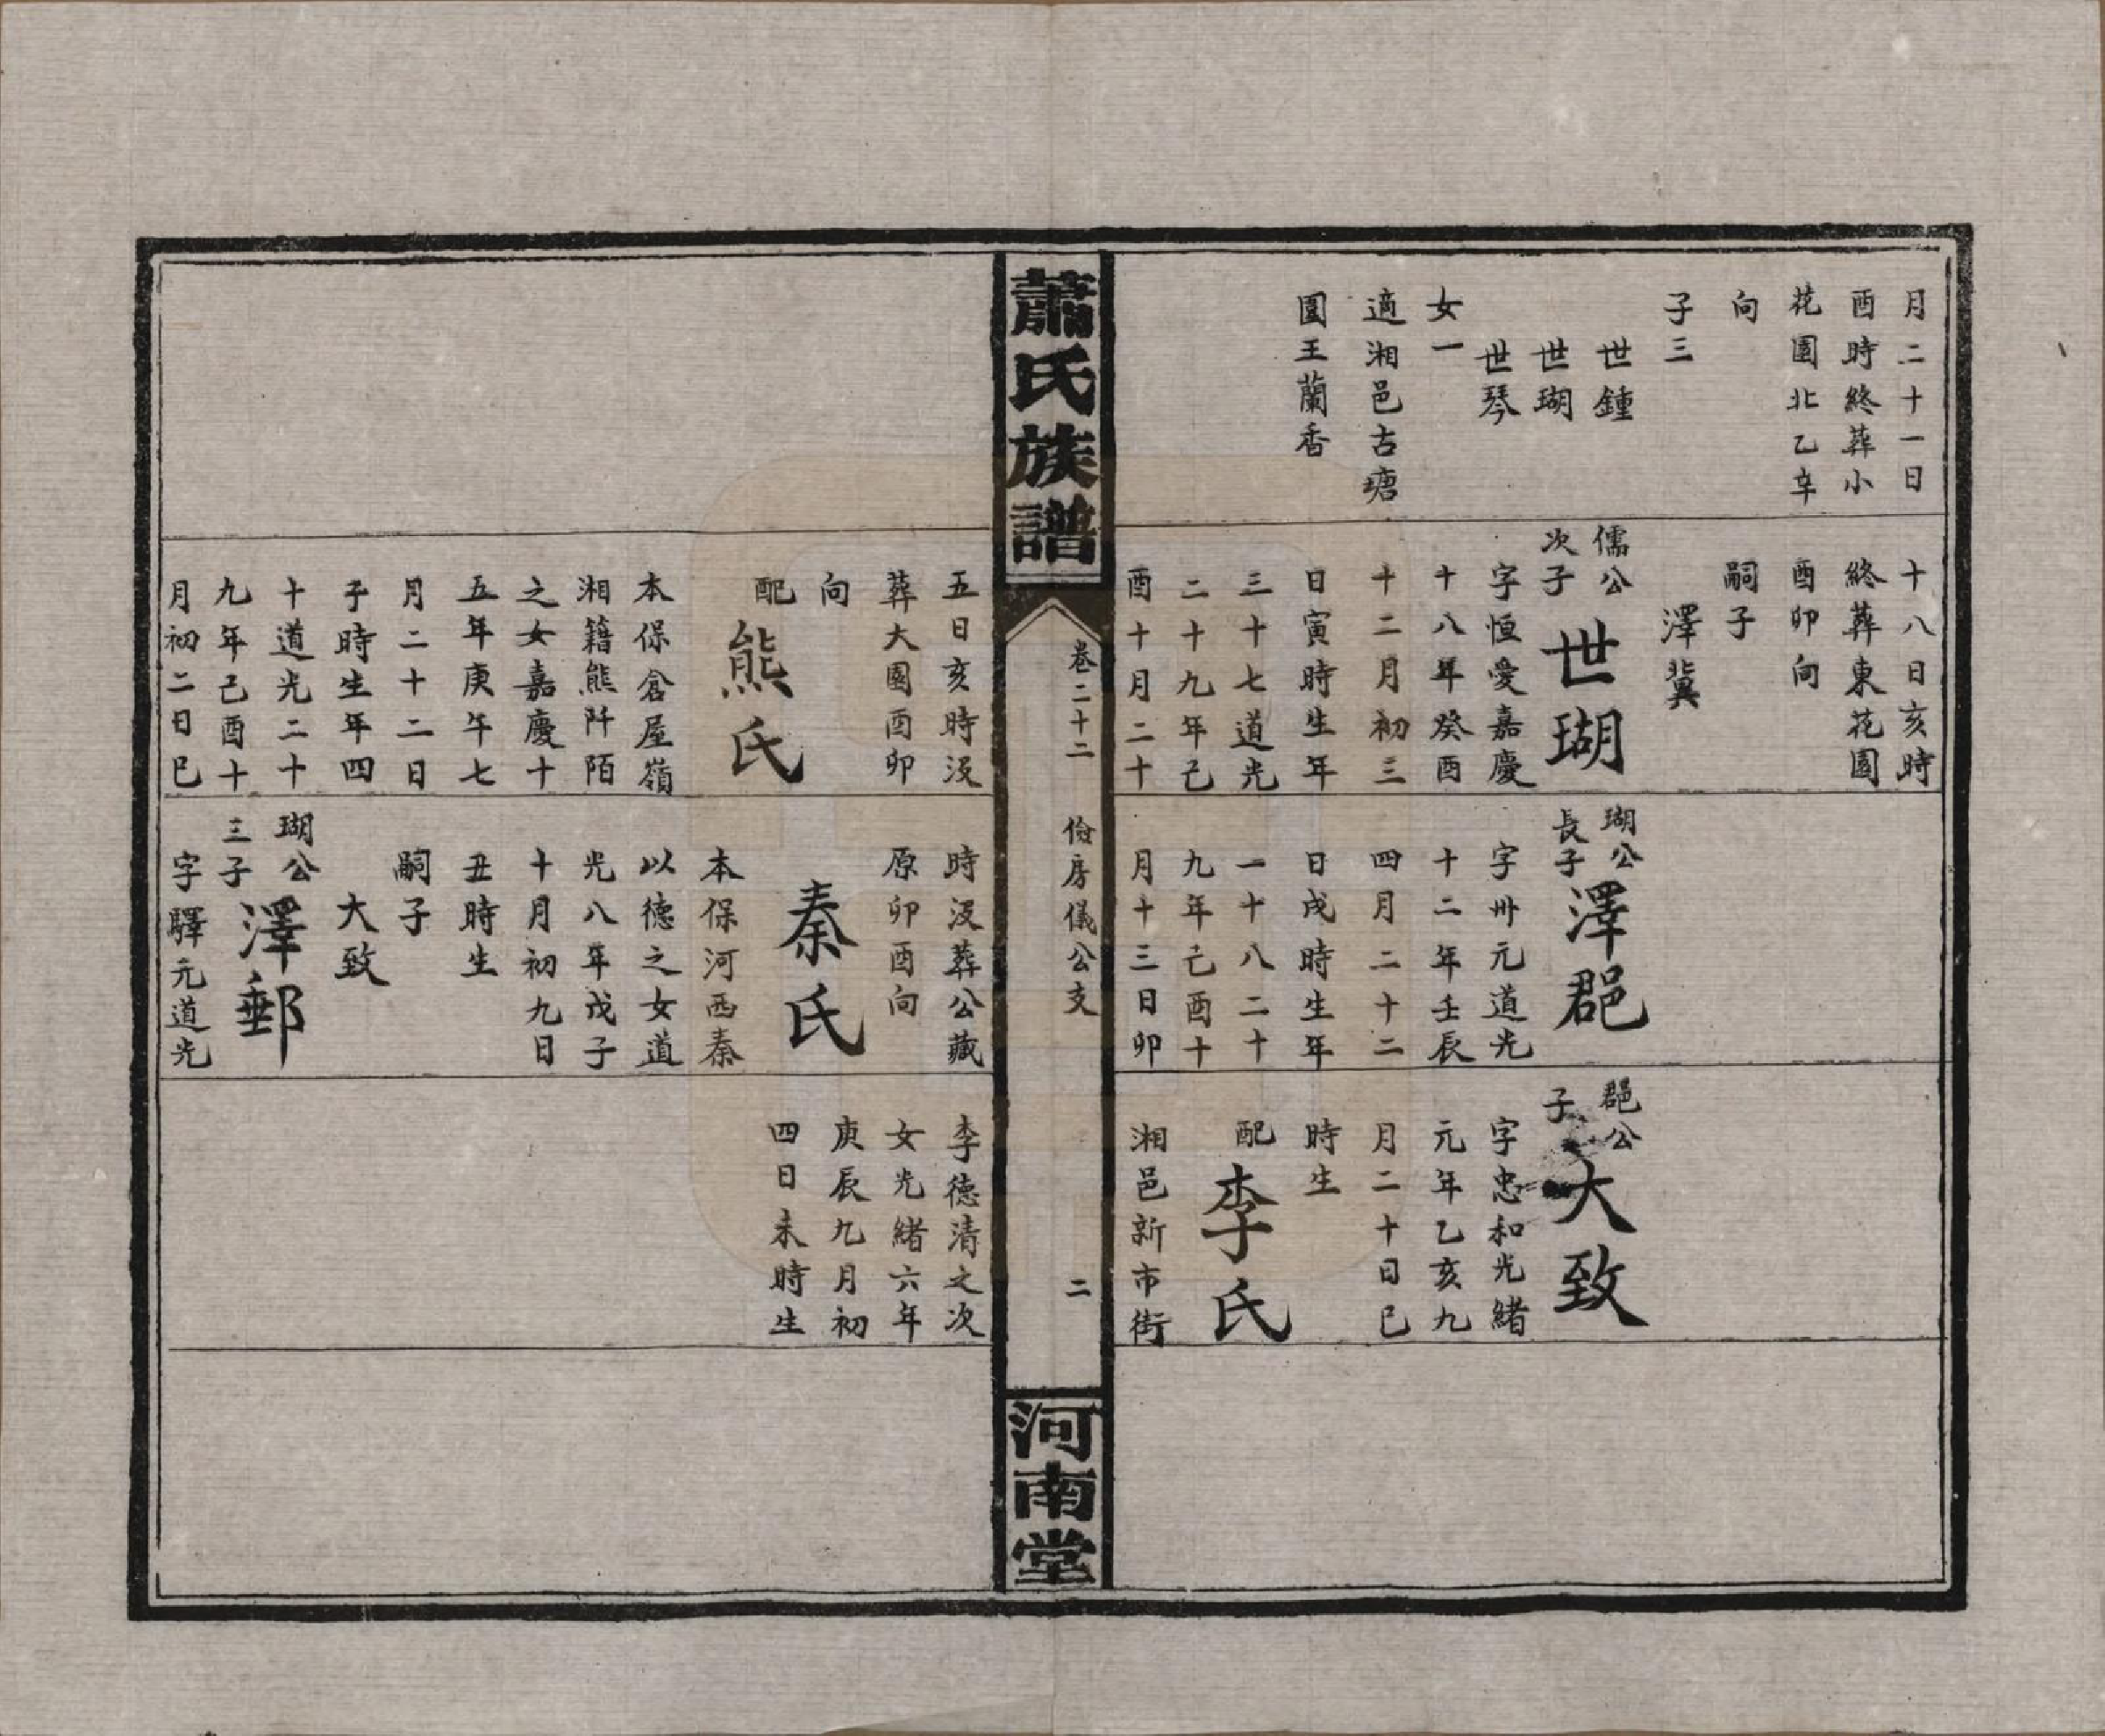 月二十一日
酉時終葬小
花園北乙辛
向
子三
世鍾
世瑚
世琴
女一
適湘邑古塘
圍王蘭香
十八日亥時
終葬東花園
酉卯向
嗣子
澤冀
儒公
次子
世瑚
字恒愛嘉慶
十八年癸酉
十二月初三
日寅時生年
三十七道光
二十九年己
酉十月二十
瑚公
長子
澤郒
字卅元道光
十二年壬辰
四月二十二
日戌時生年
一十八二十
九年己酉十
月十三日卯
郒公
子
大致
字忠和光緒
元年乙亥九
月二十日巳
時生
配
李氏
湘邑新市街
蕭氏族譜
卷二十二
儉房儀公支
二
河南堂
五日亥時沒
葬大園酉卯
向
配
熊氏
本保倉屋嶺
湘籍熊阡陌
之女嘉慶十
五年庚午七
月二十二日
子時生年四
十道光二十
九年己酉十
月初二日巳
時沒葬公藏
原卯酉向
秦氏
本保河西秦
以德之女道
光八年戊子
十月初九日
丑時生
嗣子
大致
瑚公
三子
澤郵
字驛元道光
李德清之次
女光緒六年
庚辰九月初
四日未時生